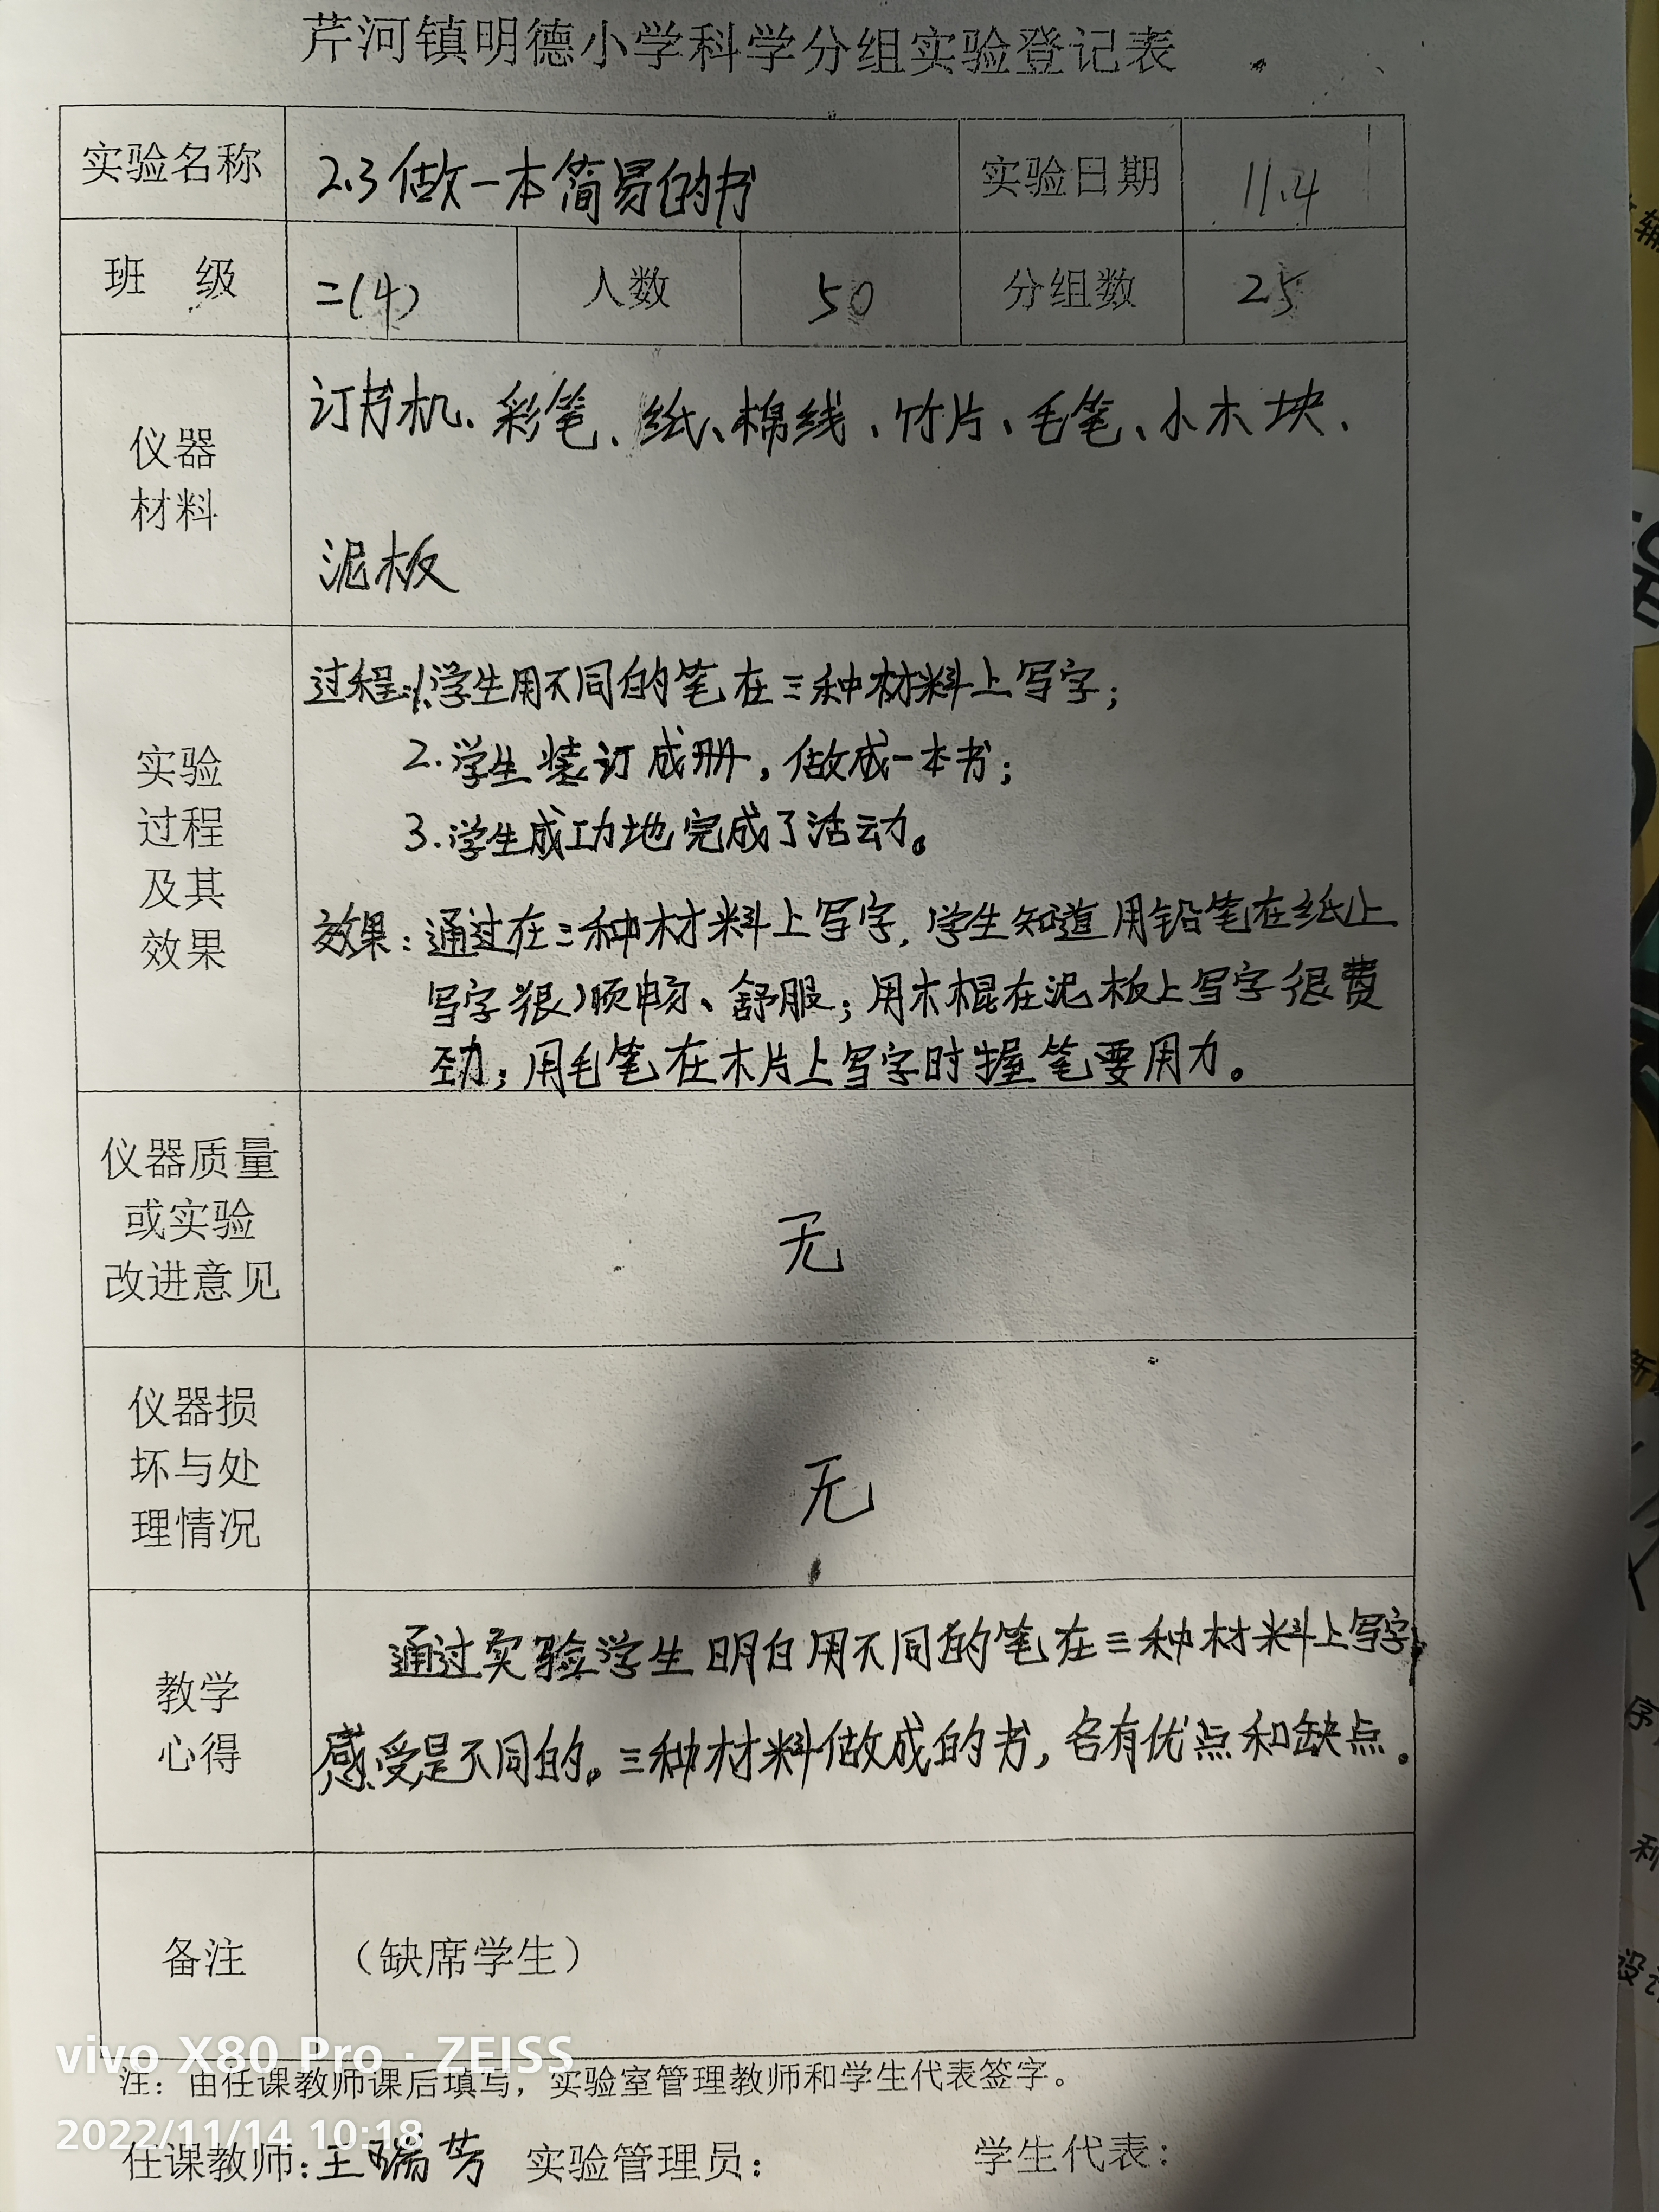 芹河镇明德小学科学分组实验登记表
实验名称 2.3做一本简易的书 实验日期 11.4
班 级 二(4) 人数 50 分组数 25
仪器
材料
订书机、彩笔、纸、棉线、竹片、毛笔、小木块、
泥板
实验
过程
及其
效果
过程:1.学生用不同的笔在三种材料上写字;
2.学生装订成册,做成一本书;
3.学生成功地完成了活动。
效果:通过在三种材料上写字,学生知道用铅笔在纸上
写字很顺畅、舒服;用木棍在泥板上写字很费
劲;用毛笔在木片上写字时握笔要用力。
仪器质量
或实验
改进意见
无
仪器损
坏与处
理情况
无
教学
心得
通过实验学生明白用不同的笔在三种材料上写字,
感受是不同的。三种材料做成的书,各有优点和缺点。
备注 (缺席学生)
vivo X80 Pro · ZEISS
注:由任课教师课后填写,实验室管理教师和学生代表签字。
2022/11/14 10:18
任课教师:王瑞芳 实验管理员: 学生代表: